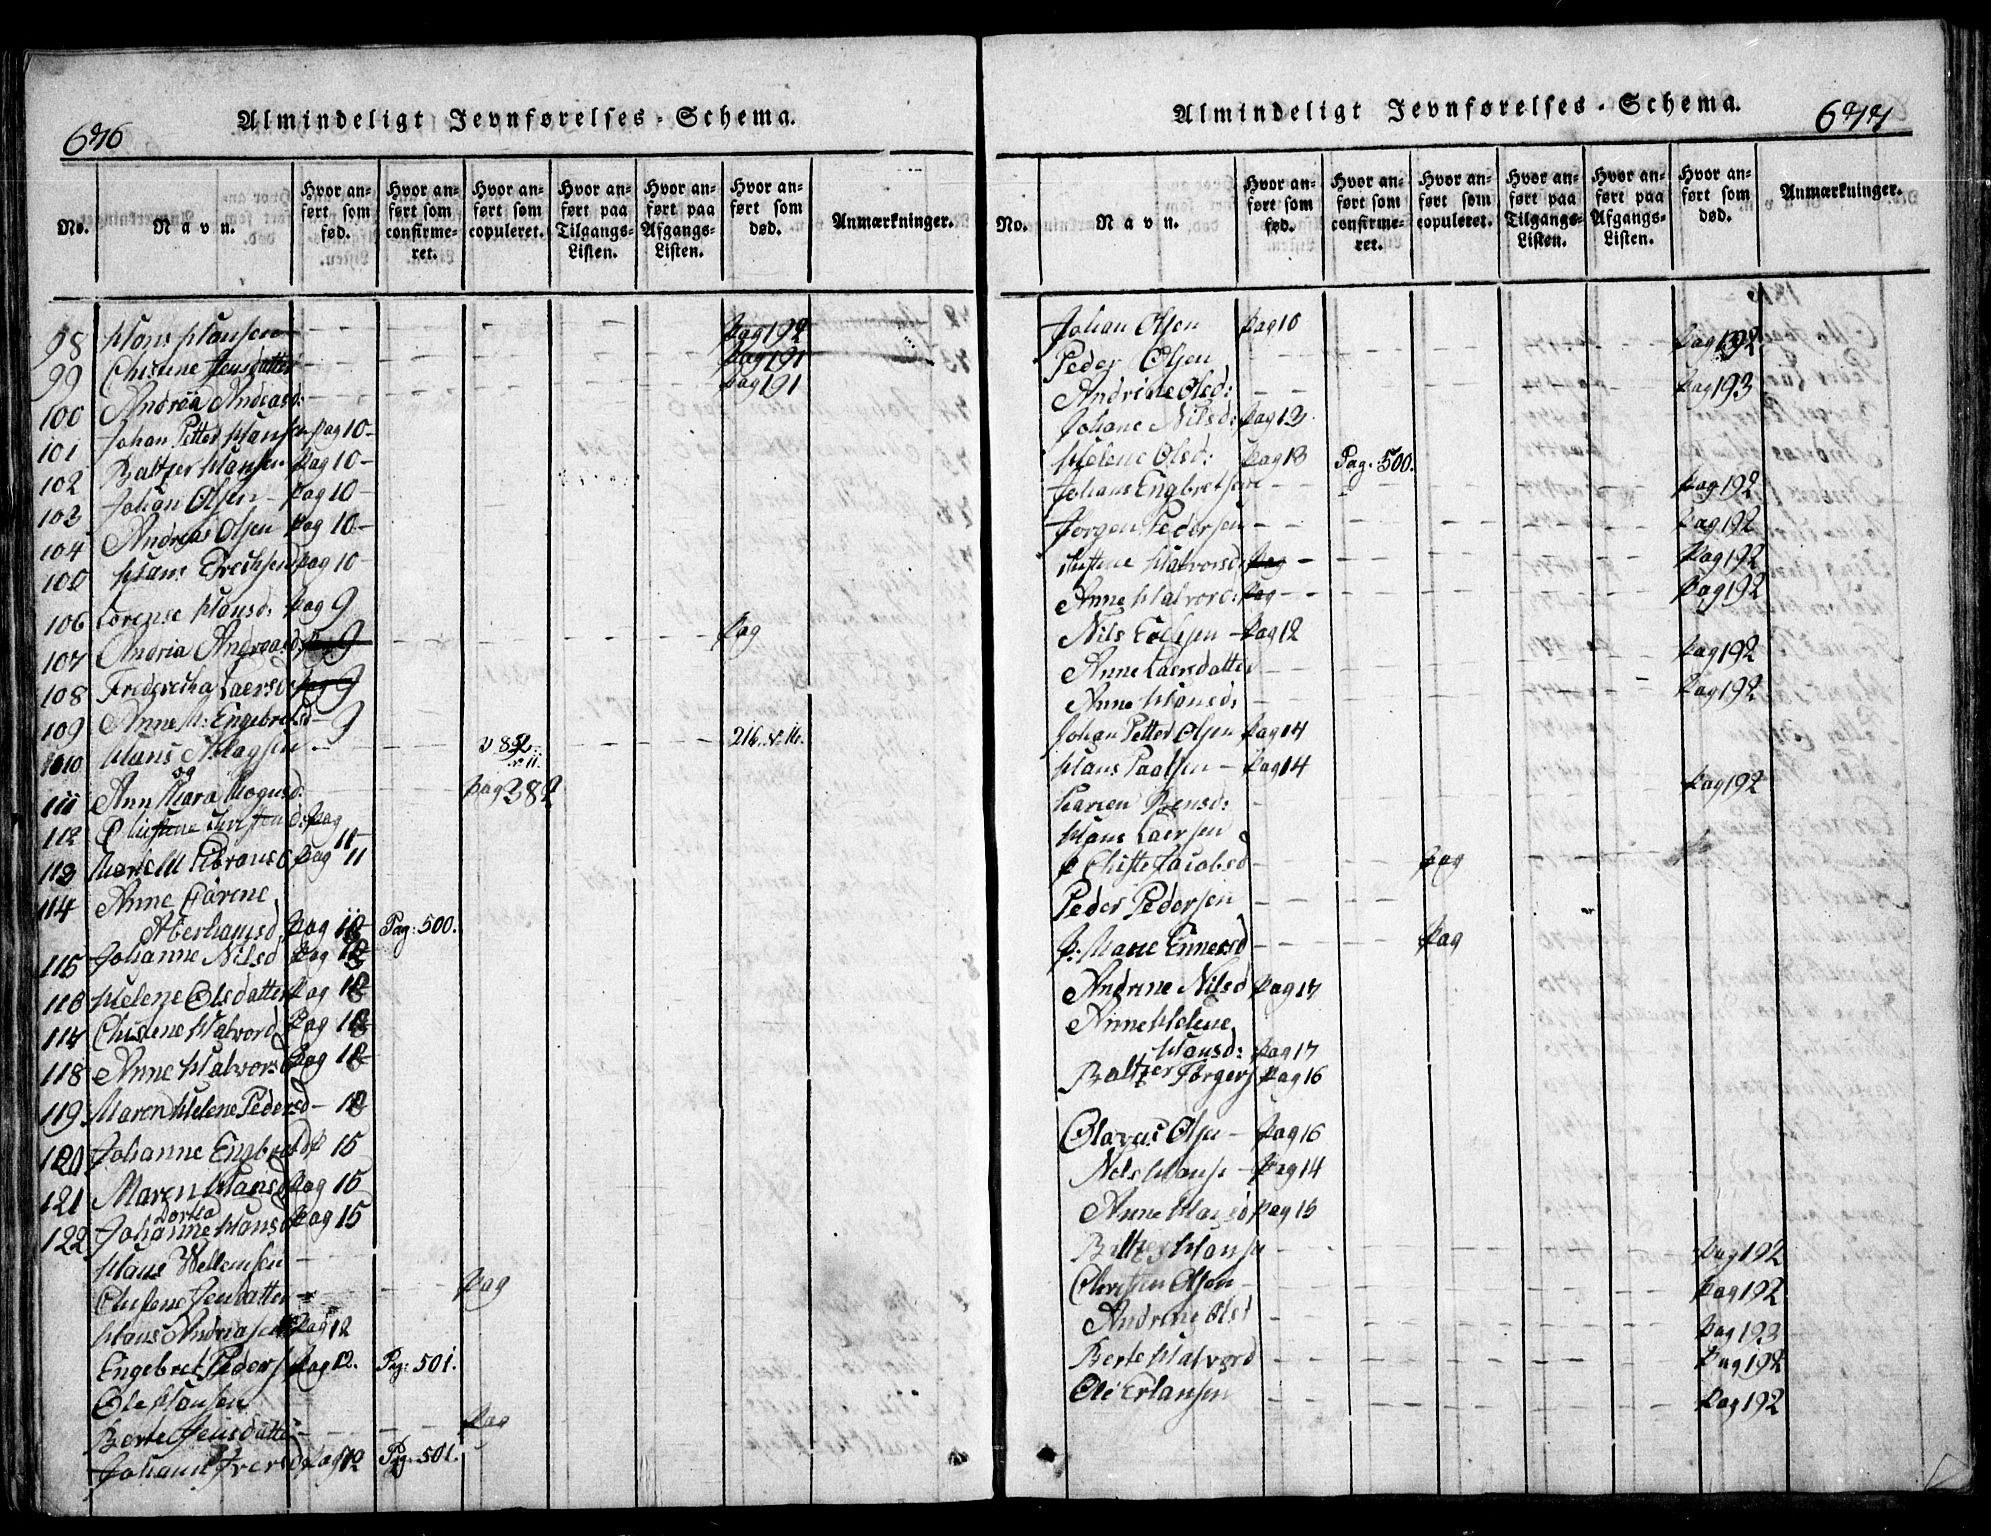 676
Almindeligt Jevnførelses-Schema.
No.
Navn.
Hvor anført som fød.
Hvor anført som confirmeret.
Hvor anført som copuleret.
Hvor anført paa Tilgangs-Listen.
Hvor anført paa Afgangs-Listen.
Hvor anført som død.
Anmærkninger.
98 Hans Hansen Pag 192
99 Christine Jensdatter Pag 191
100 Andrea Andreasd: Pag 191
101 Johan Petter Hansen Pag 10
102 Baltzer Hansen Pag 10
103 Johan Olsen Pag 10
104 Andreas Olsen Pag 10
105 Hans Erichsen Pag 10
106 Lorense Hansd: Pag 9
107 Andria Andreasd: Pag 9 Pag
108 Friderecha Laersd Pag 9
109 Anne M: Engebretsd 9
110 Hans Aslagsen 216. N. 16.
og
111 Ann Mara Mognsd: Pag 382
112 Pag 11
113 Pag 11
114 Anne Carine
Aberhamsd Pag 18 Pag: 500.
115 Johanne Nilsd Pag 18
116 Helene Olsdatter Pag 18
117 Halvord Pag 18
118 Anne Halvorsd Pag 18
119 Maren Helene Pedersd 18
120 Johanne Engbretsd P 15
121 Maren Hansd Pag 15
Dortea
122 Johanne Hansd Pag 15
Hans Wellemsen
Jensdatter Pag
Hans Andriasen Pag 12
Engebret Peders Pag 12. Pag: 501.
Ole Hansen
Berte Jensdatter Pag
Johann Iversd Pag 12 Pag: 501.
Almindeligt Jevnførelses-Schema.
677
No.
Navn.
Hvor anført som fød.
Hvor anført som confirmeret.
Hvor anført som copuleret.
Hvor anført paa Tilgangs-Listen.
Hvor anført paa Afgangs-Listen.
Hvor anført som død.
Anmærkninger.
Johan Olsen Pag 10
Peder Olsen Pag 192
Andrine Olsd: Pag 193
Johane Nilsd: Pag 13
Helene Olsd: Pag 13 Pag: 500.
Johans Engbretsen Pag 192
Jorgen Pedersen Pag 192
Halvorsd: Pag Pag 192
Anne Halvord: Pag Pag 192
Nils Pag 12
Anne Laersdatter Pag 192
Anne Hansd: Pag 192
Johan Petter Olsen Pag 14
Hans Paalsen Pag 14
Karen Pag 192
Hans Laersen
Jacobsd Pag
Peder Pedersen
P. Marie Ennersd Pag
Andrine Nilsd Pag 17
Anne Helene
Hansd: Pag 17
Baltzer Jorgens Pag 16
Olavus Olsen Pag 16
Nels Hanse Pag 14
Anne Hansd Pag 15
Baltzer Hanse Pag 192
Christen Olsen Pag 192
Andrine Olsd Pag 193
Berte Halvord Pag 192
Ole Erlansen Pag 192